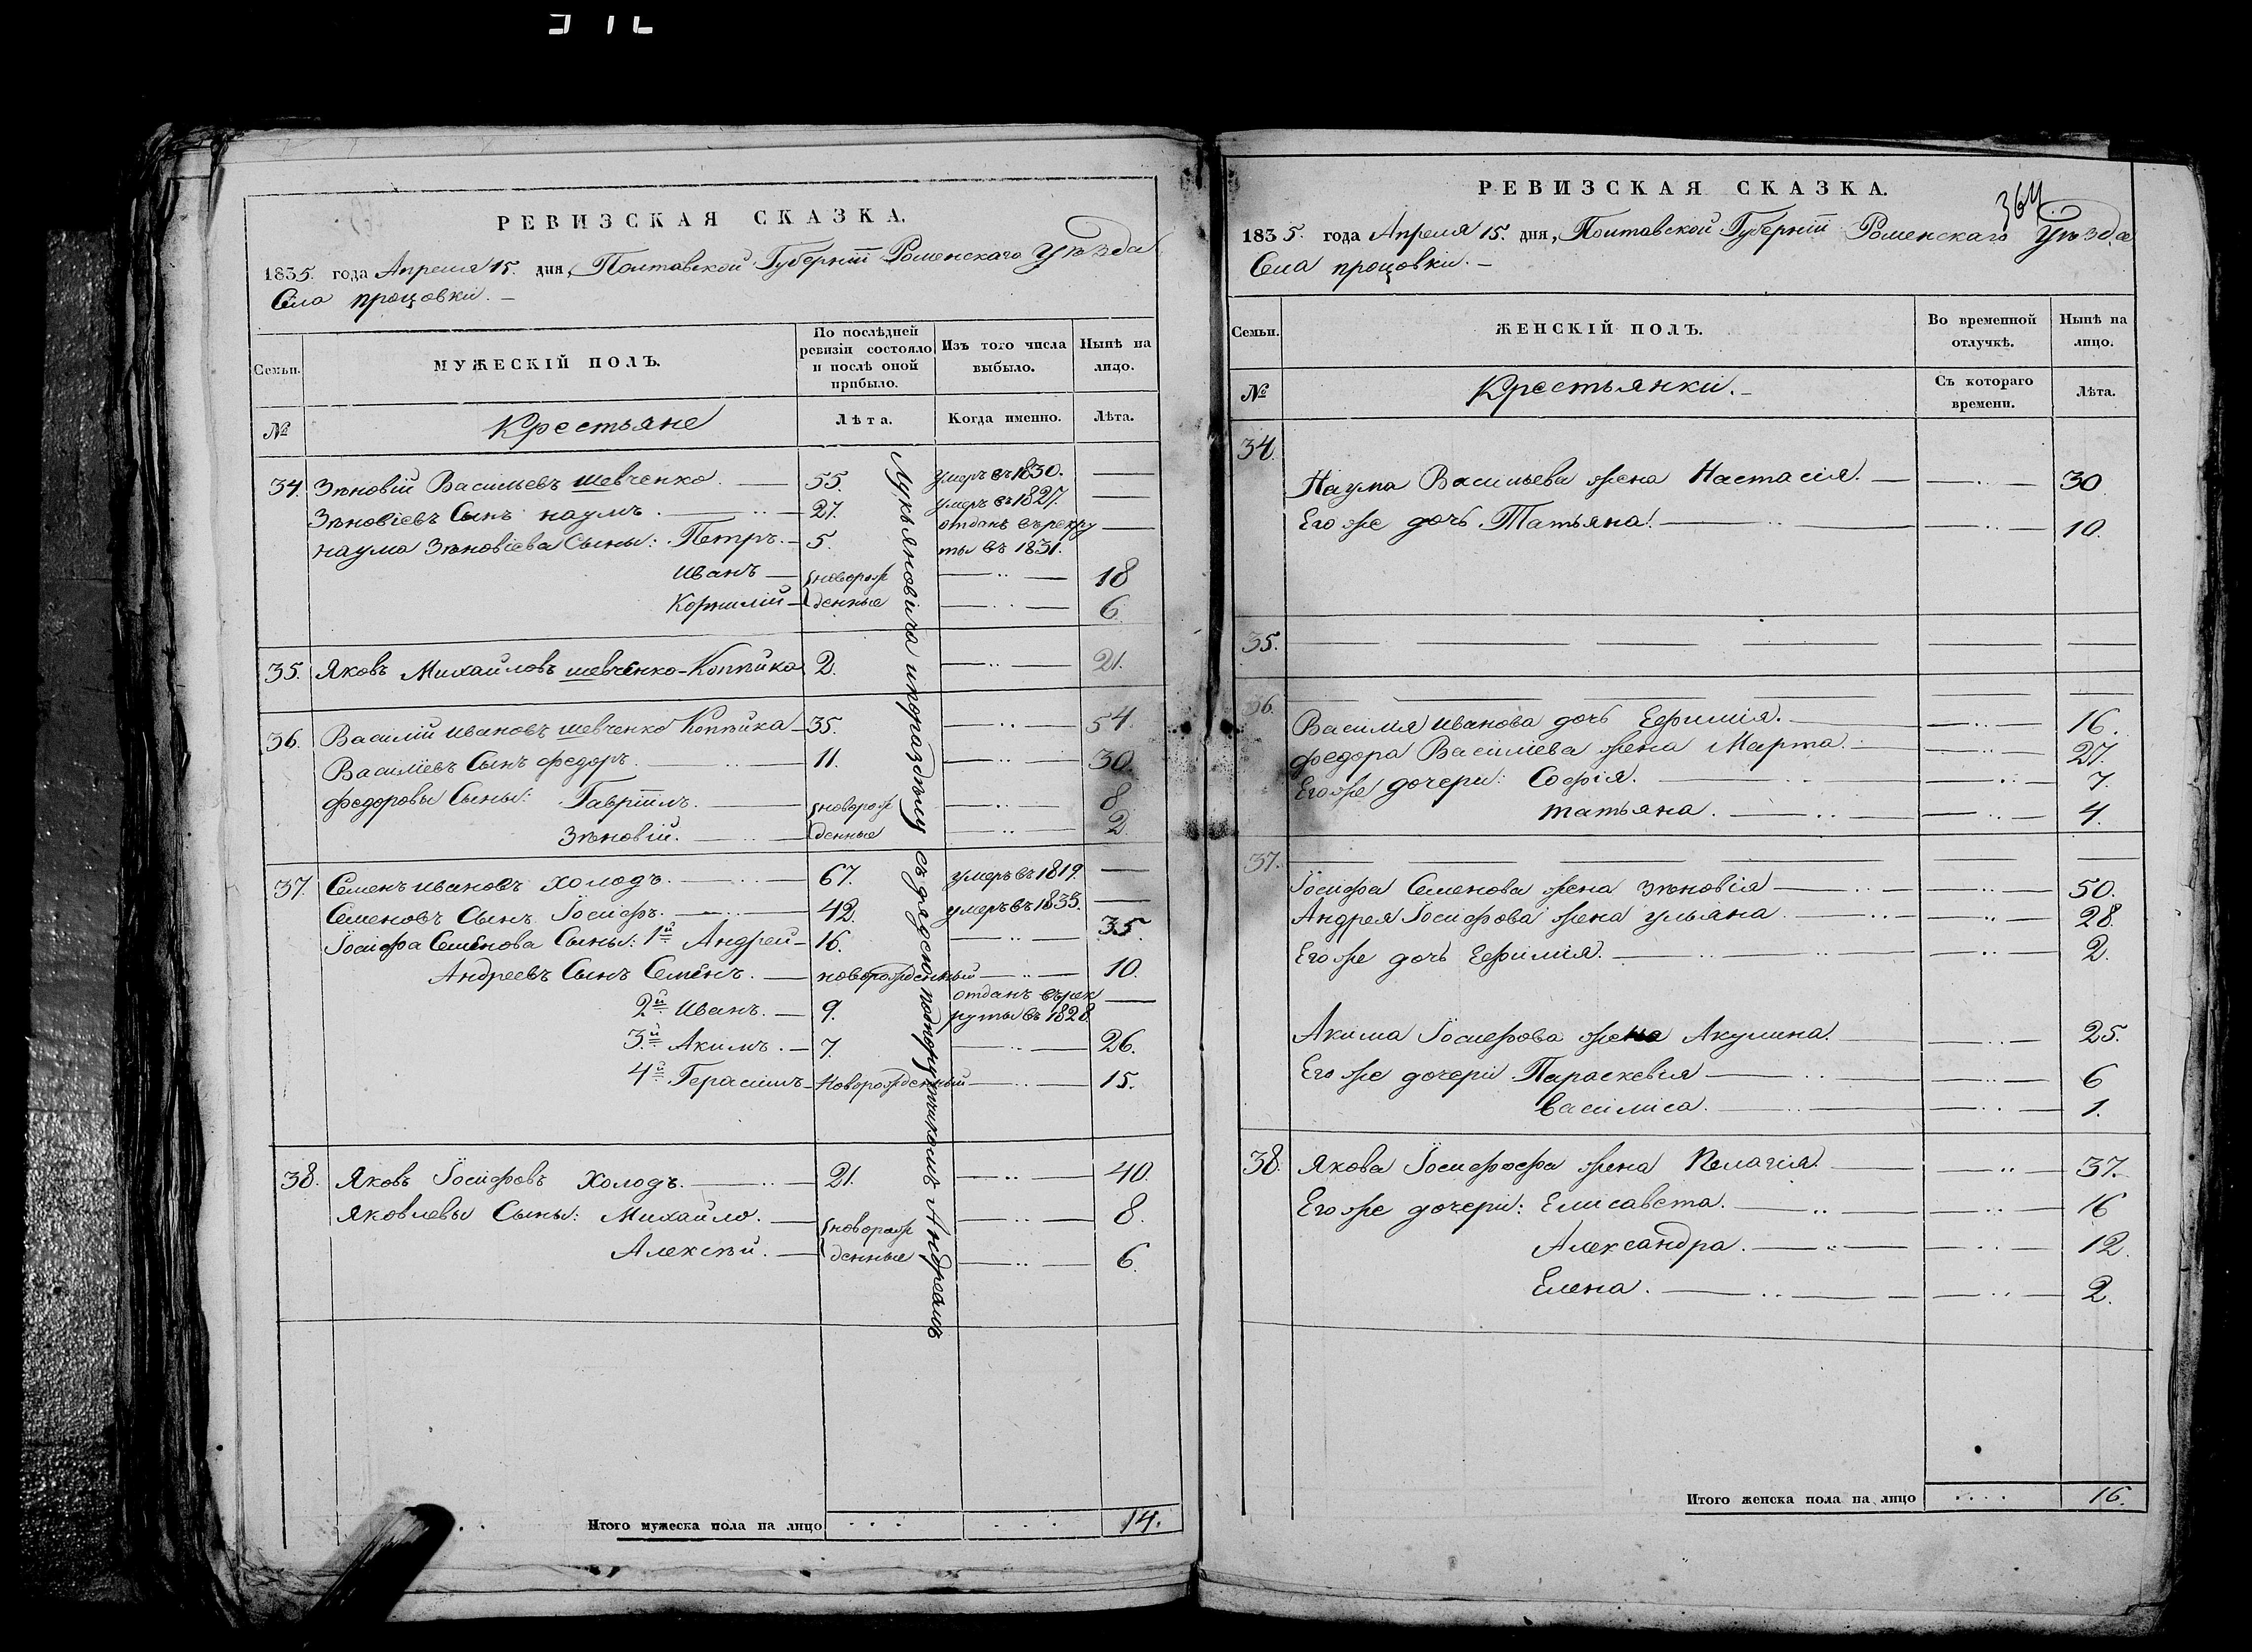 РЕВИЗСКАЯ СКАЗКА.
1835. года Апреля 15. дня, Полтавской Губернїи Роменскаго Уѣзда
Села процовки. —
Семьи.
МУЖЕСКІЙ ПОЛЪ.
По послѣдней ревизіи состояло и послѣ оной прибыло.
Изъ того числа выбыло.
Нынѣ на лицо.
№
Крестьяне
Лѣта.
Когда именно.
Лѣта.
34. Зѣновій Васильевъ шевченко. — 55. умеръ въ 1830. —
Зѣновіевъ Сынъ наумъ. — 27. умеръ въ 1827. —
наума Зѣновіева Сыны: Петръ. — 5. отданъ въ рекру —
ты въ 1831.
иванъ — новорож — 18
Корнилій — денные — 6.
35. Яковъ Михайловъ шевченко-Коппика 2. — 21.
36. Василій ивановъ шевченко Коппика — 35. — 54
Василіевъ Сынъ федоръ. — 11. — 30.
федоровы Сыны: Гаврїилъ. — новорож — 8
Зѣновій. — денные — 2
37. Семенъ ивановъ холодъ. — 67. умеръ въ 1819. —
Семеновъ Сынъ Іосифъ. — 42. умеръ въ 1835. —
Іосифа Семенова Сыны: 1й Андрей — 16. — 35.
Андреевъ Сынъ Семенъ. — новорожденный — 10.
2й иванъ. — 9. отданъ въ рек —
руты въ 1828.
3й Акимъ. — 7. — 26.
4й Герасимъ — Новорожденный — 15.
38. Яковъ Іосифовъ Холодъ. — 21. — 40.
Яковлевы Сыны: Михайло. — новорож — 8.
Алексѣй. — денные — 6.
Лукьяновича
съ
подпоручикомъ Андреемъ
Итого мужеска пола на лицо 14.
РЕВИЗСКАЯ СКАЗКА.
364
1835. года Апреля 15. дня, Полтавской Губернїи Роменскаго Уѣзда
Села процовки. —
Семьи.
ЖЕНСКІЙ ПОЛЪ.
Во временной отлучкѣ.
Нынѣ на лицо.
№
Крестьянки. —
Съ котораго времени.
Лѣта.
34.
Наума Васильева жена Настасія. — 30
Его же дочь Татьяна. — 10.
35.
36.
Василія иванова дочь Ефимія. — 16.
федора Василіева жена Марта. — 27.
Его же дочери: Софія. — 7.
татьяна. — 4.
37.
Іосифа Семенова жена Зѣновія — 50.
Андрея Іосифова жена ульяна — 28.
Его же дочь Ефимія. — 2.
Акима Іосифова жена Акулина. — 25.
Его же дочери Параскевія — 6
василиса. — 1.
38. Якова Іосифофа жена Пелагія. — 37.
Его же дочери: Елисавета. — 16
Александра. — 12.
Елена. — 2.
Итого женска пола на лицо 16.